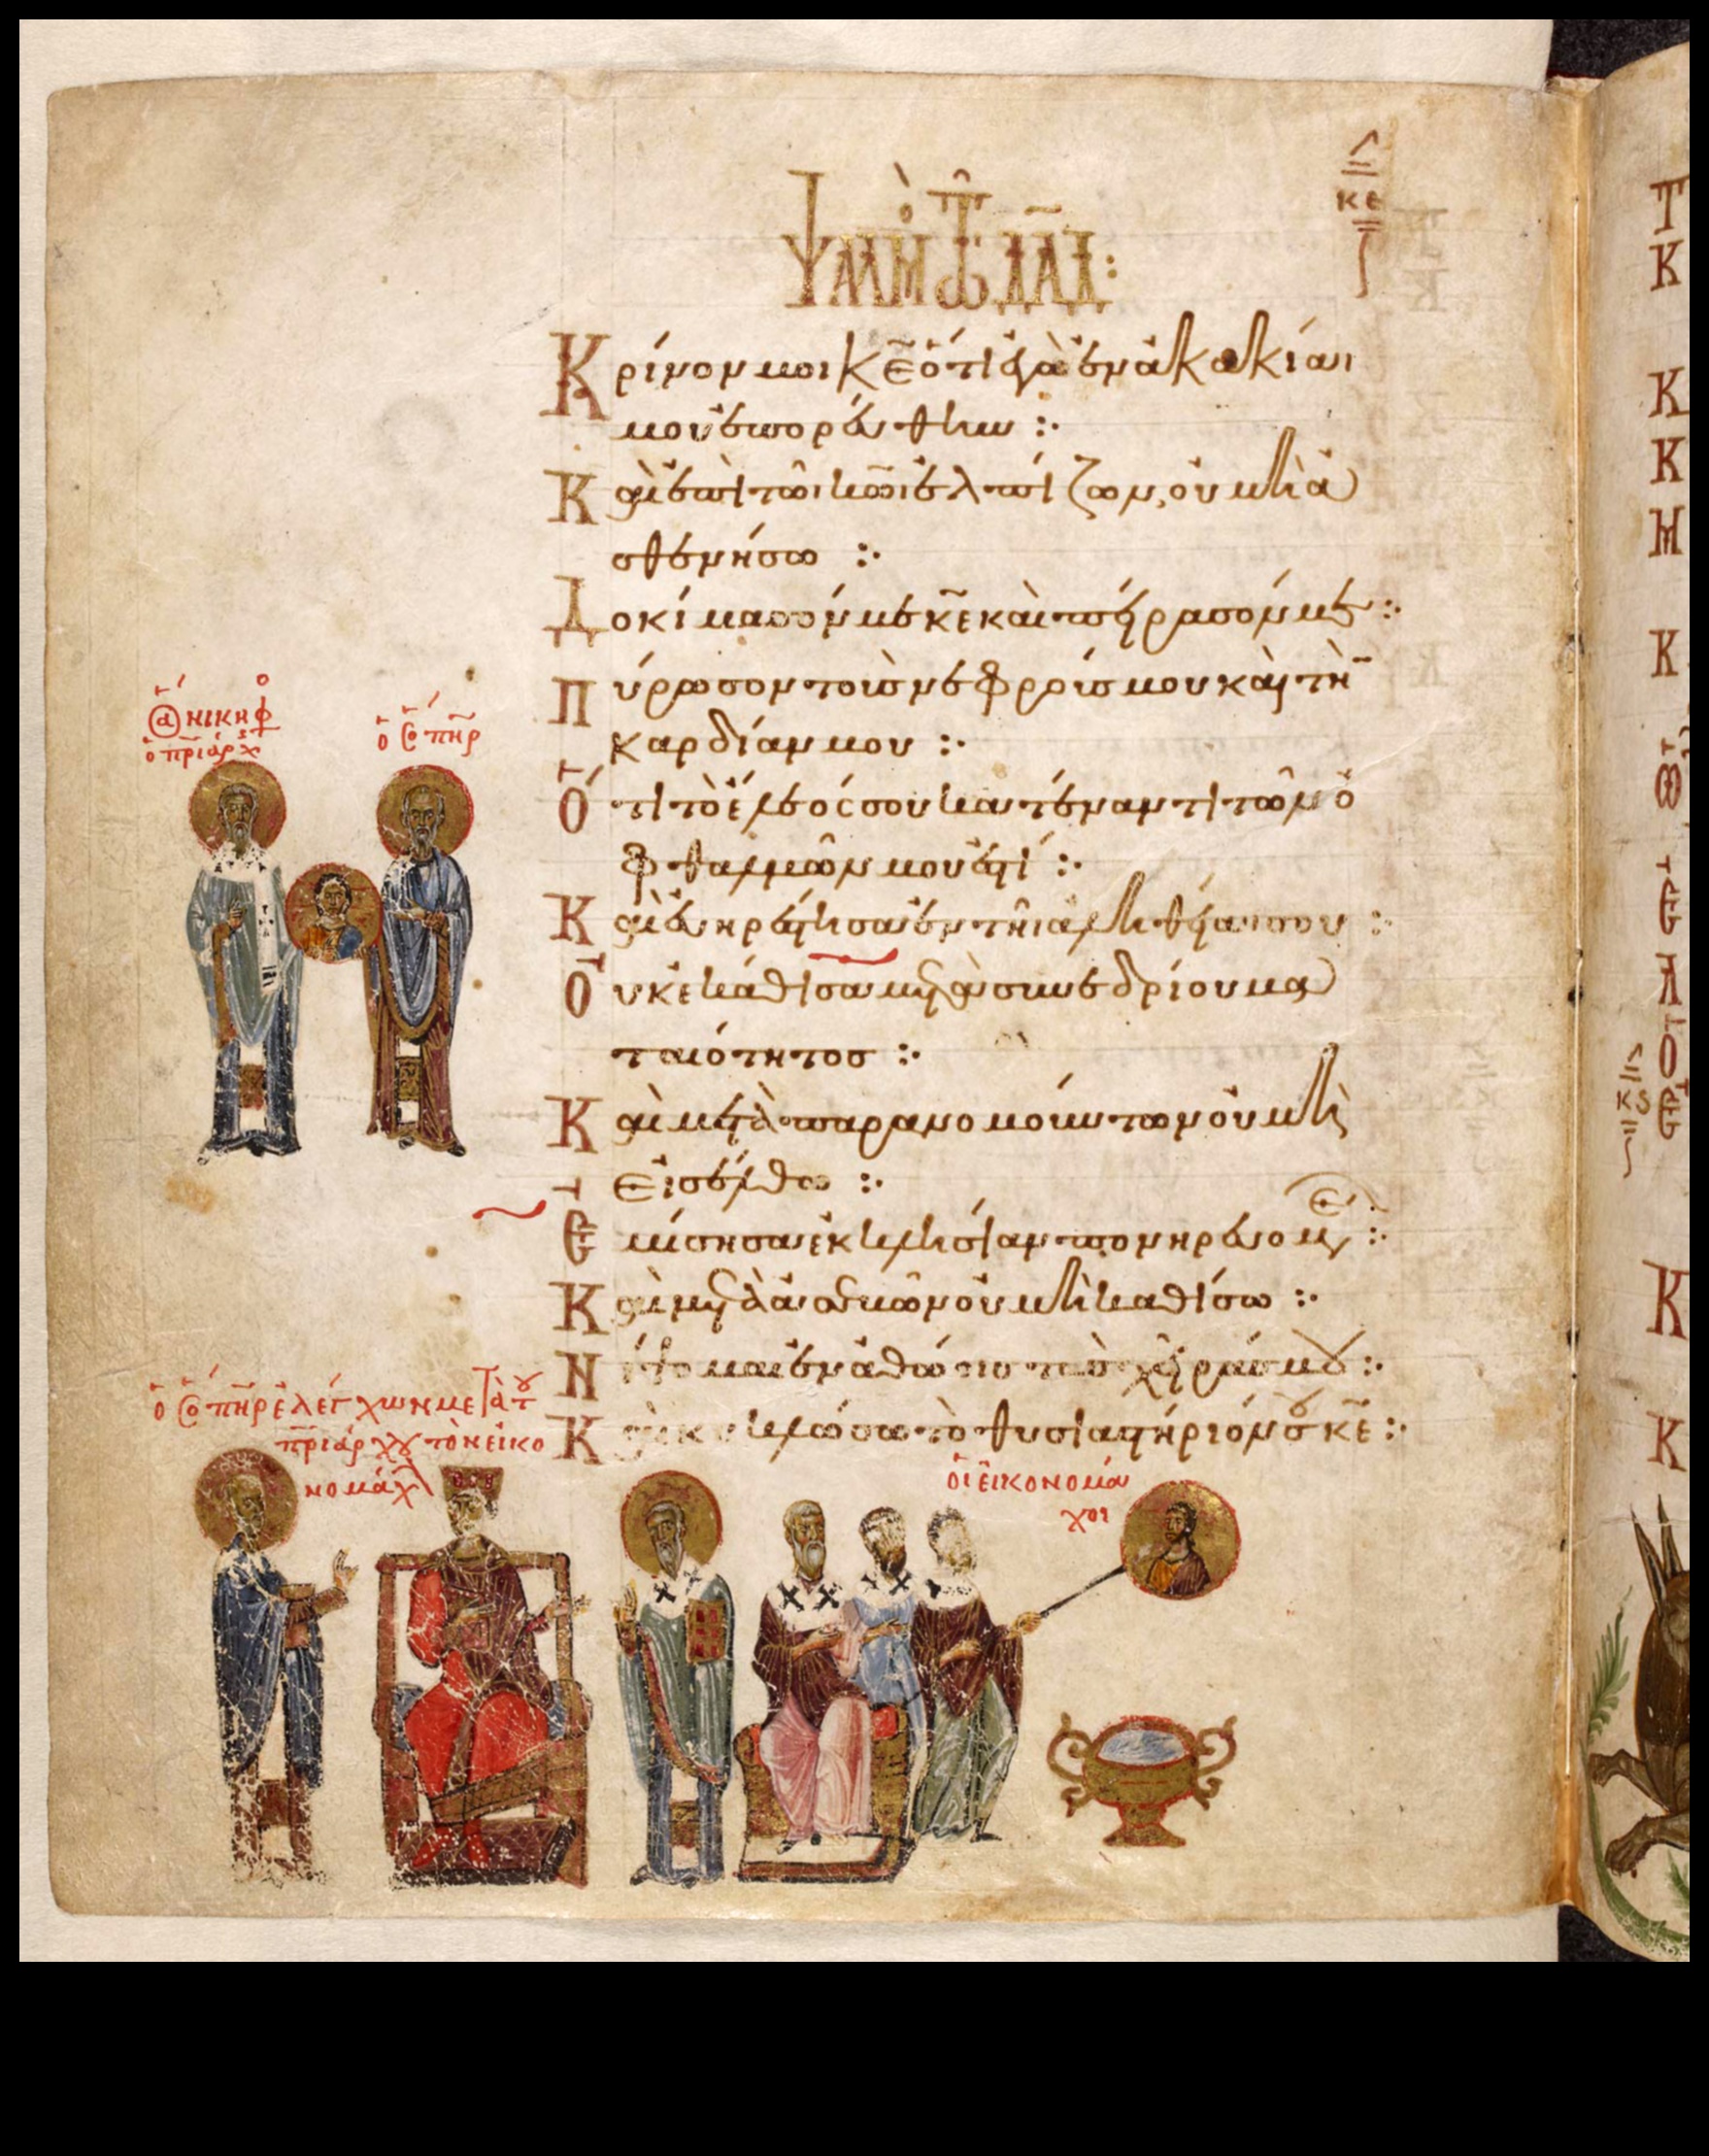 ΚΕ
ΨΑΛΜὸς Τῶ ΔΑΔ:
Κρίνόν μοι κε ὅτι ἐγὼ ἐν ἀκακίαι
μου ἐπορεύθην :·
Καὶ ἐπὶ τῶι κωι ἐλπίζων, οὐ μὴ ἀ
σθενήσω :·
Δοκίμασόν με κε καὶ πείρασόν με :·
Πύρωσον τοὺς νεφρούς μου καὶ τὴν
καρδίαν μου :·
Ὅτι τὸ ἔλεός σου κατέναντι τῶν ὀ
φθαλμῶν μου ἐστί :·
Καὶ εὐηρέστησα ἐν τῆι ἀληθείαι σου :·
Οὐκ ἐκάθισα μετὰ συνεδρίου μα
ταιότητος :·
Καὶ μετὰ παρανομούντων οὐ μὴ
εἰσέλθω :·
Ἐμίσησα ἐκκλησίαν πονηρευομέ :·
Καὶ μετὰ ἀσεβῶν οὐ μὴ καθίσω :·
Νίψομαι ἐν ἀθώοις τὰς χεῖράς μου :·
Καὶ κυκλώσω τὸ θυσιαστήριόν σου κε :·
ὁ ἅ ΝΙΚΗΦ
ὁ πριάρχ
ὁ ὅ πηρ
ὁ ὅ πηρ ἐλέγχων μετὰ τοῦ
πριάρχου τὸν εἰκο
νομάχ
οἱ εἰκονομά
χοι
Τ
Κ
Κ
Κ
Μ
Κ
Ε
Λ
Ο
Ε
Κς
Κ
Κ